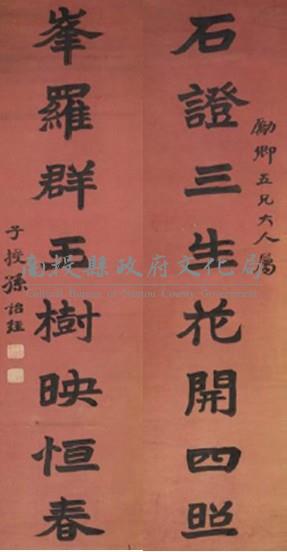 勵卿五兄大人屬
石證三生花開四照
峯羅群玉樹映恒春
子授孫詒經
南投縣政府文化局
Cultural Bureau of Nantou County Government